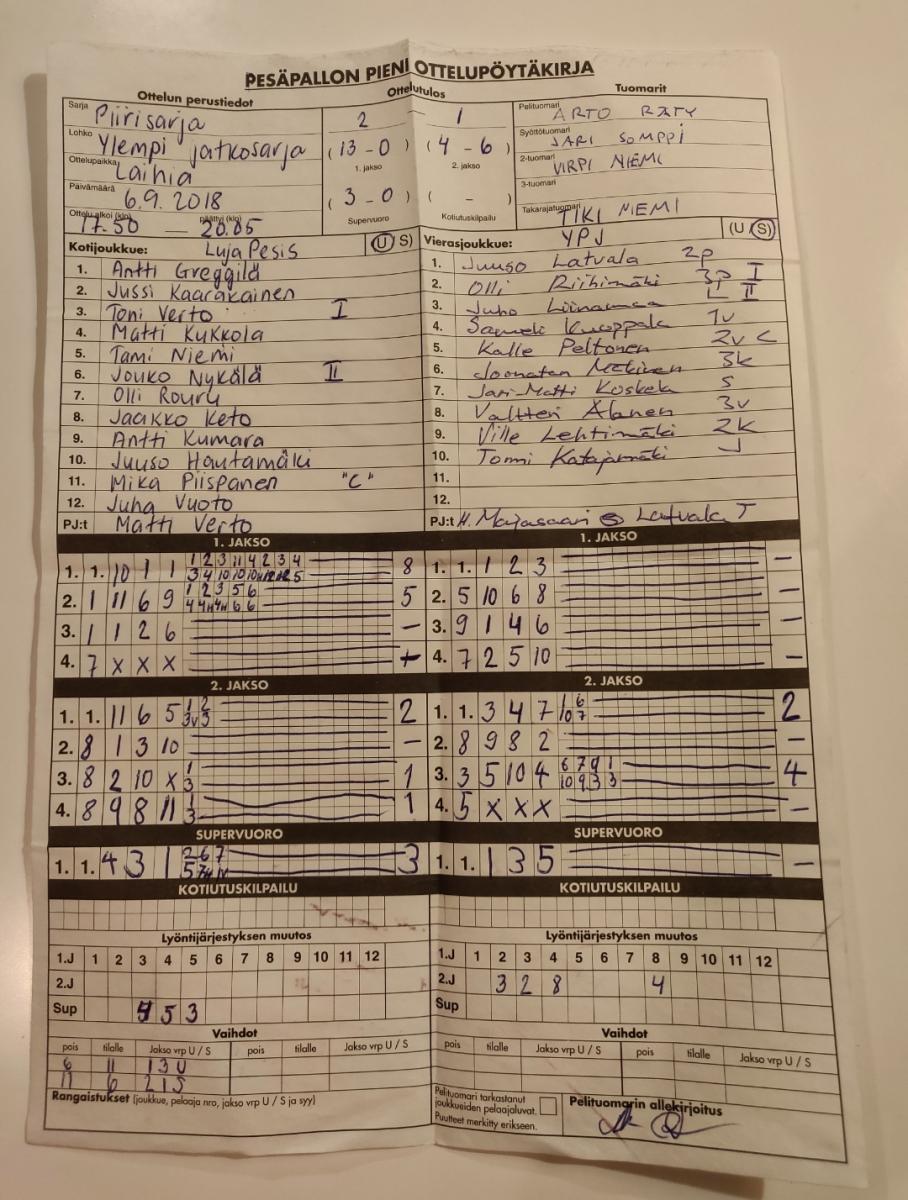 PESÄPALLON PIENI OTTELUPÖYTÄKIRJA
Ottelun perustiedot Ottelutulos Tuomarit
Sarja Piirisarja 2 – 1 Pelituomari ARTO RÄTY
Lohko Ylempi jatkosarja (13 - 0) (4 - 6) Syöttötuomari JARI SOMPPI
1. jakso 2. jakso
Ottelupaikka Laihia 2-tuomari VIRPI NIEMI
Päivämäärä 6.9. 2018 (3 - 0) ( - ) 3-tuomari
Ottelu alkoi (klo) 17.50 — päättyi (klo) 20.05 Supervuoro Kotiutuskilpailu Takarajatuomari TIKI NIEMI
Kotijoukkue: LujaPesis (U S) Vierasjoukkue: YPJ (U S)
1. Antti Greggilä 1. Juuso Latvala 2p
2. Jussi Kaarakainen 2. Olli Riihimäki 3p I
3. Toni Verto I 3. Juho Liinamaa L II
4. Matti Kukkola 4. Sameli Kuoppala 1v
5. Tami Niemi 5. Kalle Peltonen 2v C
6. Jouko Nykälä II 6. Joonatan Mäkinen 3k
7. Olli Rouru 7. Jari-Matti Koskela S
8. Jaakko Keto 8. Valtteri Alanen 3v
9. Antti Kumara 9. Ville Lehtimäki 2k
10. Juuso Hautamäki 10. Tommi Katajamäki J
11. Mika Piispanen "C" 11.
12. Juha Vuoto 12.
PJ:t Matti Verto PJ:t H. Majasaari Latvala J
1. JAKSO 1. JAKSO
1. 1. 10 1 1 1 2 3 11 4 2 3 4 8 1. 1. 1 2 3 –
3 4 10 10 10 5
2. 1 11 6 9 1 2 3 5 6 5 2. 5 10 6 8 –
4 4H 4H 6 6
3. 1 1 2 6 – 3. 9 1 4 6 –
4. 7 x x x 4. 7 2 5 10 –
2. JAKSO 2. JAKSO
1. 1. 11 6 5 1 2 2 1. 1. 3 4 7 1 6 2
3v 3 10 7
2. 8 1 3 10 – 2. 8 9 8 2 –
3. 8 2 10 x 1 1 3. 3 5 10 4 6 7 9 1 4
3 10 9 3 3
4. 8 9 8 11 1 1 4. 5 x x x –
3
SUPERVUORO SUPERVUORO
1. 1. 4 3 1 2 6 7 3 1. 1. 1 3 5 –
5 7H
KOTIUTUSKILPAILU KOTIUTUSKILPAILU
Lyöntijärjestyksen muutos Lyöntijärjestyksen muutos
1.J 1 2 3 4 5 6 7 8 9 10 11 12 1.J 1 2 3 4 5 6 7 8 9 10 11 12
2.J 2.J 3 2 8 4
Sup 4 5 3 Sup
Vaihdot Vaihdot
pois tilalle Jakso vrp U / S pois tilalle Jakso vrp U / S pois tilalle Jakso vrp U / S pois tilalle Jakso vrp U / S
6 11 1 3 U
11 6 2 1 S
Rangaistukset (joukkue, pelaaja nro, jakso vrp U / S ja syy) Pelituomari tarkastanut
joukkueiden pelaajaluvat.
Puutteet merkitty erikseen.
Pelituomarin allekirjoitus